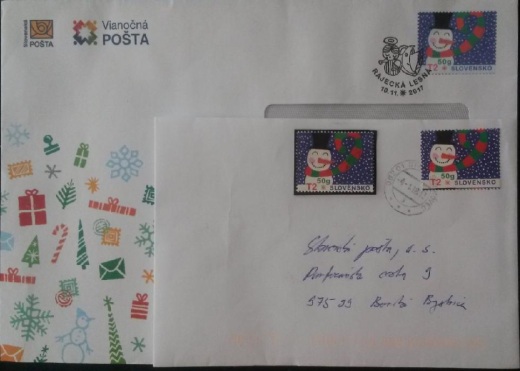 Slovenská
POŠTA
Vianočná
POŠTA
50g
T2 SLOVENSKO
RAJECKÁ LESNÁ
10.11. 2017
50g
T2 SLOVENSKO
50g
T2 SLOVENSKO
Slovenská pošta, a. s.
Partizánska cesta 9
975 99 Banská Bystrica